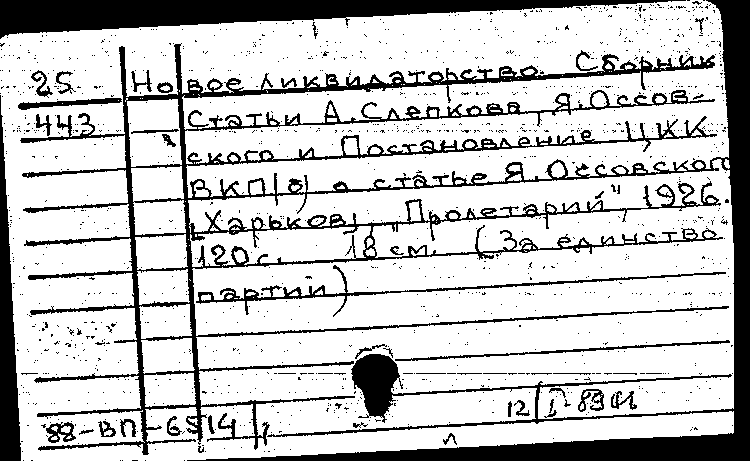 25 Новое ликвидаторство. Сборник
443 Статьи А. Слепкова, Я. Оссов-
ского и Постановление ЦКК
ВКП(б) о статье Я. Оссовского
[Харьков], "Пролетарий", 1926.
120 с. 18 см. (За единство
партии)
88-ВП-6514
12/